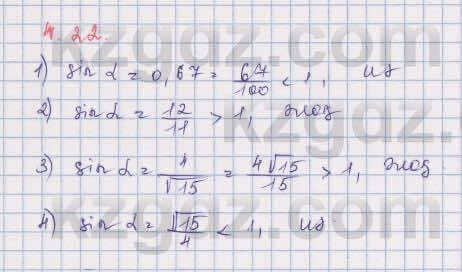 4.22.
1) sin α = 0,67 = 67/100 < 1, иә
2) sin α = 12/11 > 1, жоқ
3) sin α = 4/√15 = 4√15/15 > 1, жоқ.
4) sin α = √15/4 < 1, иә
kzgdz.com
kzgdz.com
kzgdz.com